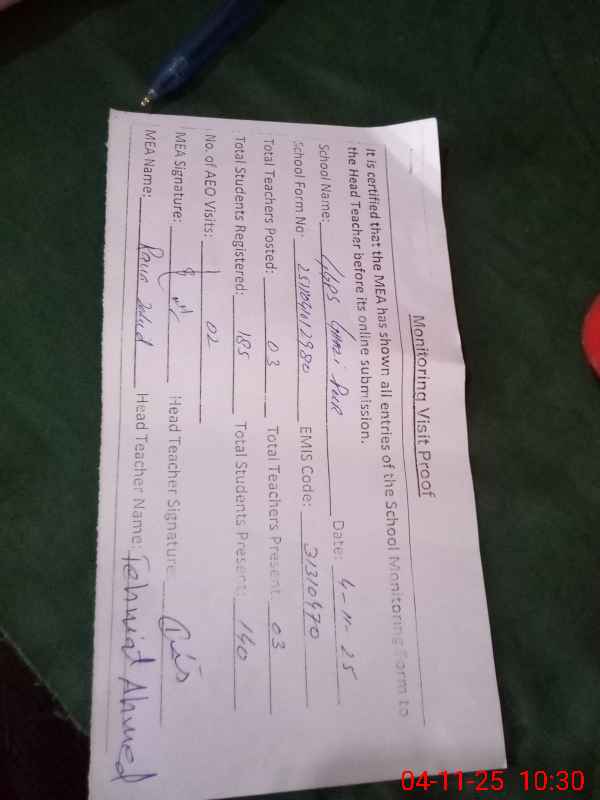 Monitoring Visit Proof
It is certified that the MEA has shown all entries of the School Monitoring Form to
the Head Teacher before its online submission.
School Name: GGPS Date: 4-11-25
School Form No: EMIS Code: 31310470
Total Teachers Posted: 03 Total Teachers Present: 03
Total Students Registered: 185 Total Students Present: 140
No. of AEO Visits: 02
MEA Signature: Head Teacher Signature:
MEA Name: Head Teacher Name: Tehniat Ahmed
04-11-25 10:30